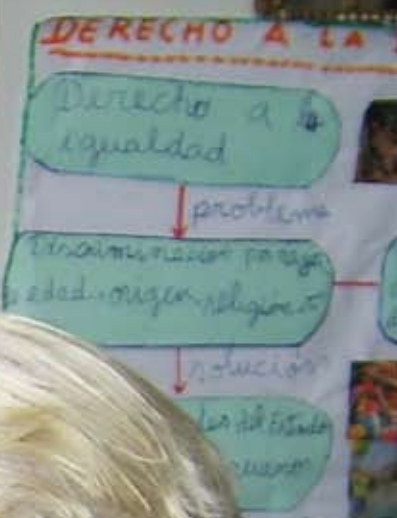 DERECHO A LA
Derecho a la
igualdad
problema
Discriminación por
edad, origen, religión
solución
del Estado